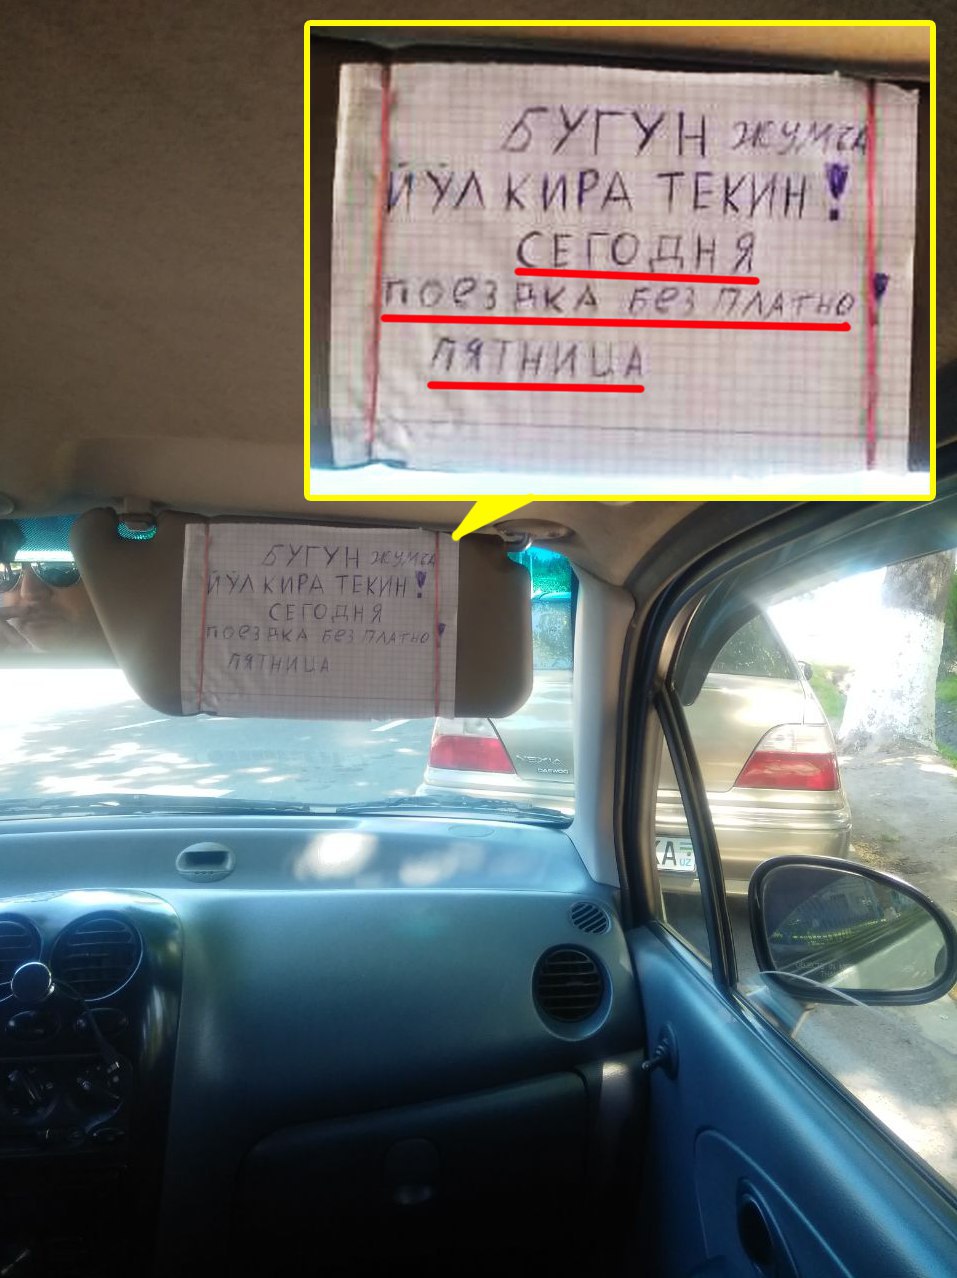 БУГУН ЖУМЪА
ЙЎЛ КИРА ТЕКИН!
СЕГОДНЯ
ПОЕЗДКА БЕЗ ПЛАТНО!
ПЯТНИЦА
БУГУН ЖУМЪА
ЙЎЛ КИРА ТЕКИН!
СЕГОДНЯ
ПОЕЗДКА БЕЗ ПЛАТНО!
ПЯТНИЦА
NEXIA
DAEWOO
KA
UZ